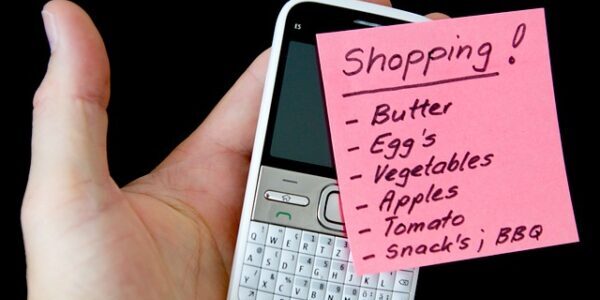 E5
Shopping !
- Butter
- Egg's
- Vegetables
- Apples
- Tomato
- Snack's ; BBQ
Q W E R T Z
A S D F G H J K L